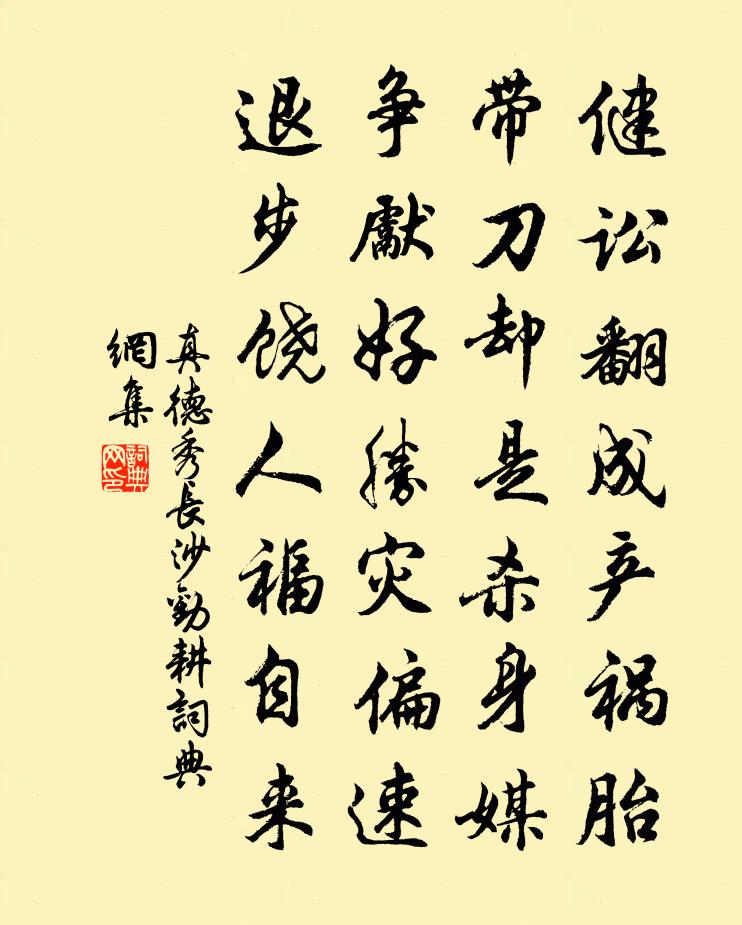 健讼翻成产祸胎
带刀却是杀身媒
争獻好勝灾偏速
退步饶人福自来
真德秀長沙勸耕詞典
網集
詞典
网印